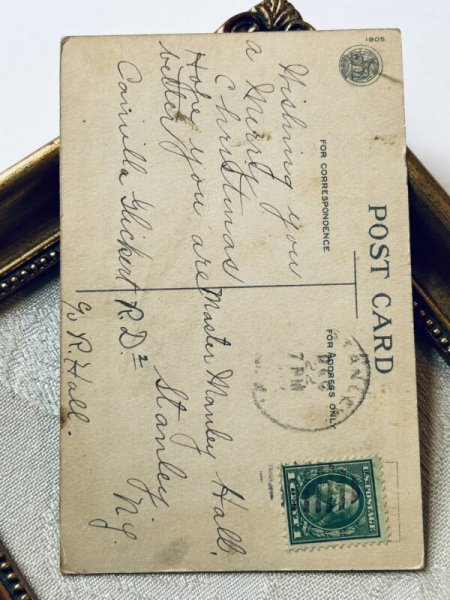 1905
POST CARD
FOR CORRESPONDENCE
FOR ADDRESS ONLY
Wishing you
a Merry
Christmas
Hope you are
better
Camilla Glickert
7 PM
U.S. POSTAGE
1 CENT 1
Master Manley Hall,
R.D. 2 Stanley
N.Y.
c/o R. Hall.